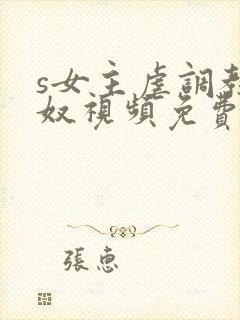 s女主虐調教
奴視頻免費
張惠